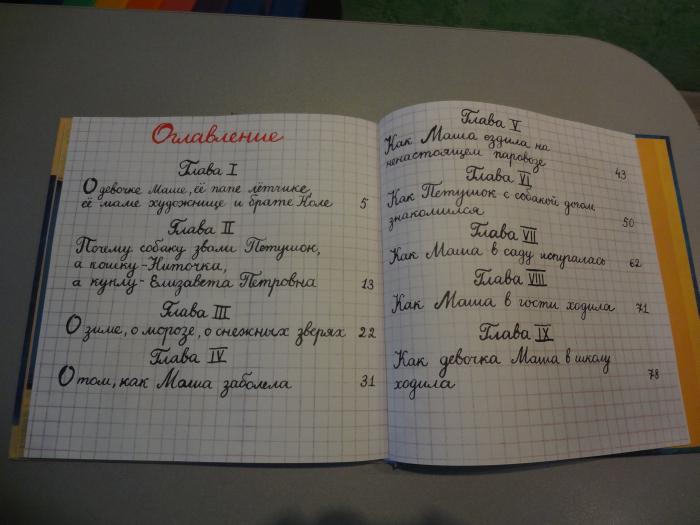 Оглавление
Глава I
О девочке Маше, её папе лётчике,
её маме художнице и брате Коле 5
Глава II
Почему собаку звали Петушок,
а кошку-Ниточка,
а куклу-Елизавета Петровна 13
Глава III
О зиме, о морозе, о снежных зверях 22
Глава IV
О том, как Маша заболела 31
Глава V
Как Маша ездила на
ненастоящем паровозе 43
Глава VI
Как Петушок с собакой догом
знакомился 50
Глава VII
Как Маша в саду испугалась 62
Глава VIII
Как Маша в гости ходила 71
Глава IX
Как девочка Маша в школу
ходила 78